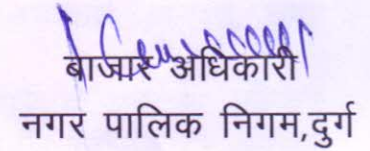 बाजार अधिकारी
नगर पालिक निगम,दुर्ग